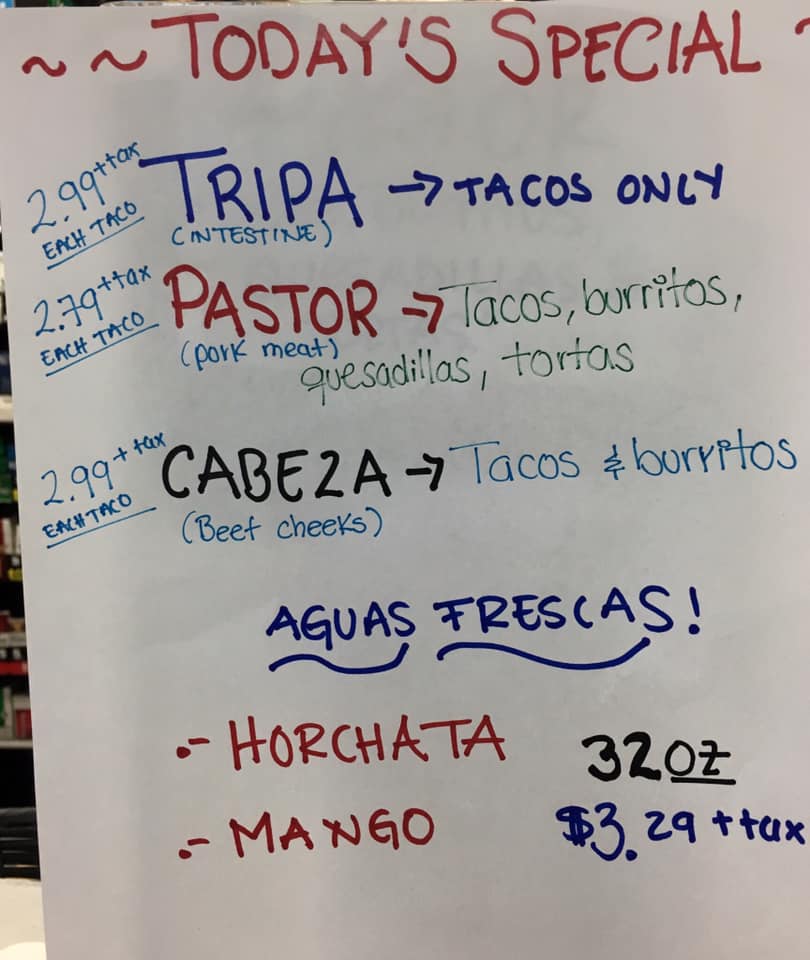 ~~TODAY'S SPECIAL~
2.99 + tax TRIPA → TACOS ONLY
EACH TACO (INTESTINE)
2.79 + tax PASTOR → Tacos, burritos,
EACH TACO (pork meat)
quesadillas, tortas
2.99 + tax CABEZA → Tacos & burritos
EACH TACO (Beef cheeks)
AGUAS FRESCAS!
.- HORCHATA 32oz
.- MANGO $3.29 + tax